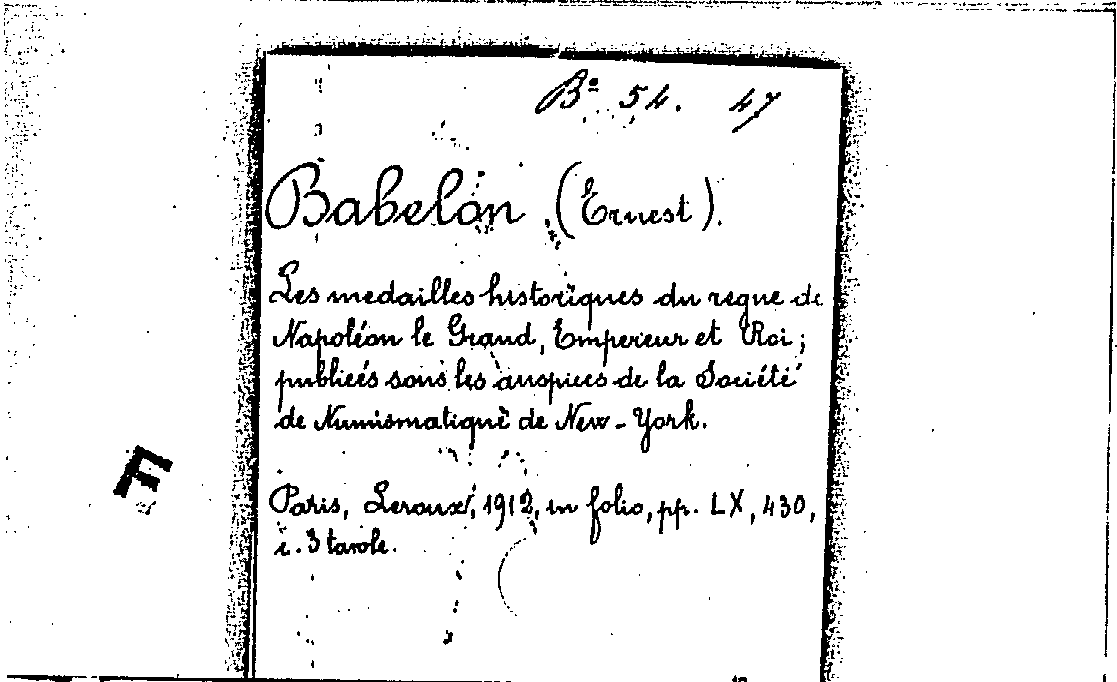 Bº 54. 47
Babelon (Ernest).
Les medailles historiques du regne de
Napoléon le Grand, Empereur et Roi;
publieés sous les auspices de la Société
de Numismatique de New-York.
Paris, Leroux, 1912, in folio, pp. LX, 430,
c. 3 tavole.